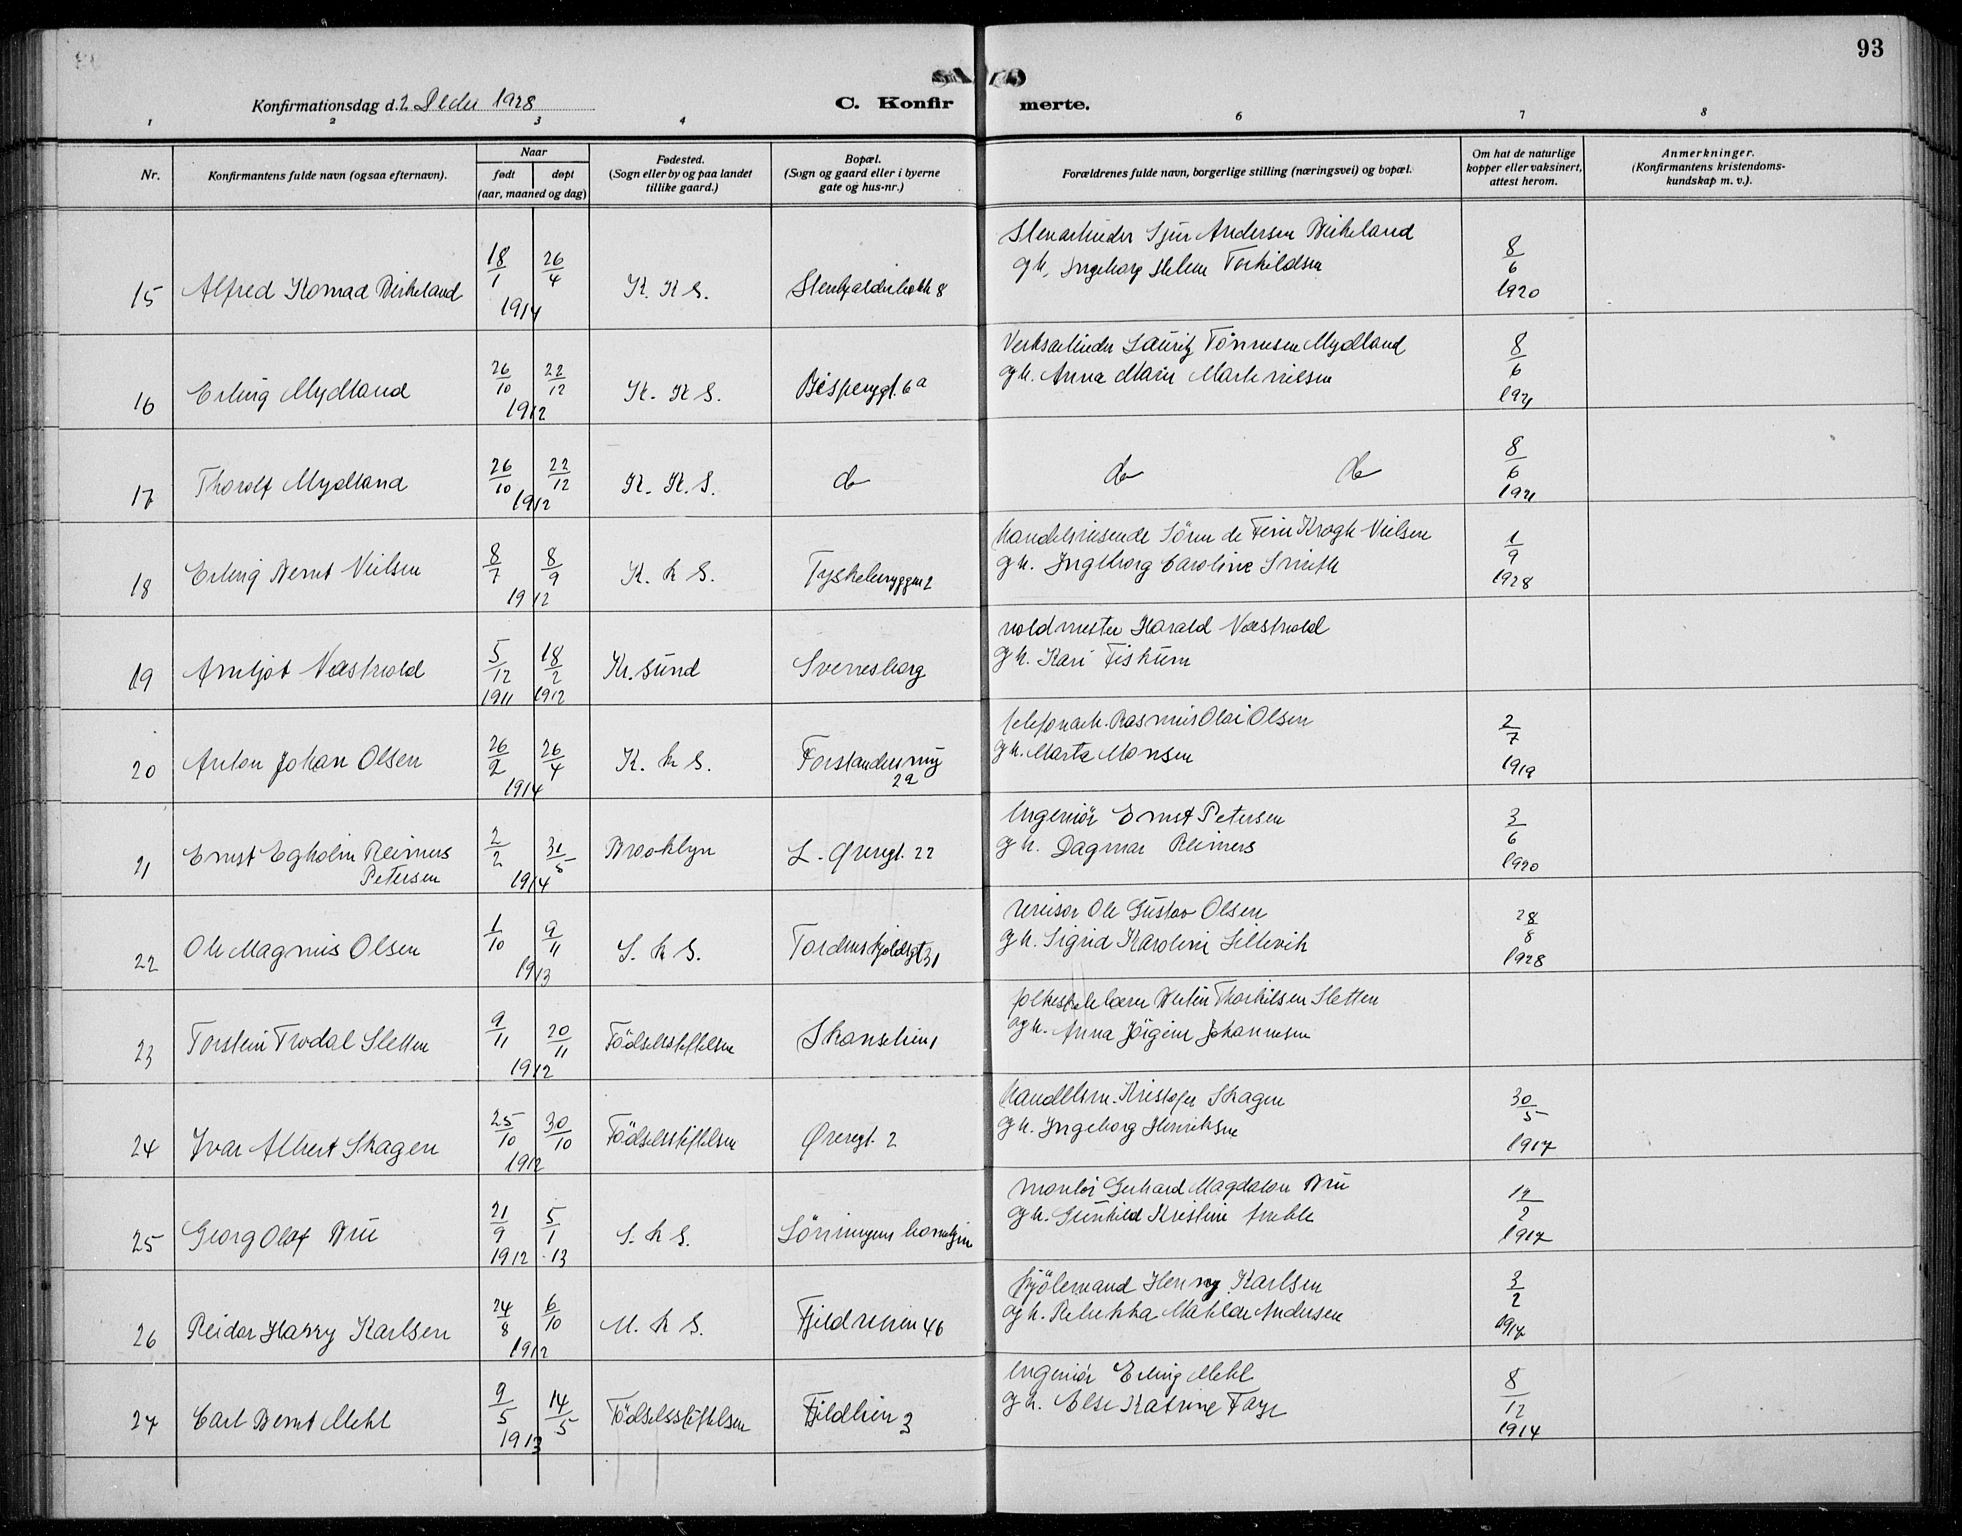 93
Konfirmationsdag d. 2 Decbr 1928
C. Konfirmerte.
1 2 3 4 6 7 8
Nr.
Konfirmantens fulde navn (ogsaa efternavn).
Naar
født
døpt
(aar, maaned og dag)
Fødested.
(Sogn eller by og paa landet
tillike gaard.)
Bopæl.
(Sogn og gaard eller i byerne
gate og hus-nr.)
Forældrenes fulde navn, borgerlige stilling (næringsvei) og bopæl.
Om hat de naturlige
kopper eller vaksinert,
attest herom.
Anmerkninger.
(Konfirmantens kristendoms-
kundskap m. v.).
15 Alfred Konrad Birkeland 18/1 26/4 1914 K. K S. 8
Stenarbeider Sjur Andersen Birkeland
og h. Ingeborg Helene Torkildsen
8/6 1920
16 Erling Mydland 26/10 22/12 1912 K. K S. Bispengt. 6a
Verksarbeider Lauritz Tönnesen Mydland
og h. Anna Marie Martinilsen
8/6 1921
17 Thorolf Mydland 26/10 22/12 1912 K. K. S. do
do do
8/6 1921
18 Erling Bernt Nielsen 8/7 8/9 1912 K. k S. Tyskebryggen 2
Handelsreisende Sören de Fine Krogh Nielsen
og h. Ingeborg Caroline Smith
1/9 1928
19 Arnljot Næstvold 5/12 1911 18/2 1912 Kr. sund Sverresborg
voldmester Harald Næstvold
og h. Kari Fiskum
20 Anton Johan Olsen 26/2 26/4 1914 K. k S. Forstandersmug
2a
telefonarb. Rasmus Olai Olsen
og h. Marta Monsen
2/7 1919
21 Ernst Egholm Reimers
Petersen
2/2 31/5 1914 Brooklyn L. Øvregt. 22
Ingeniör Ernst Petersen
og h. Dagmar Reimers
3/6 1920
22 Ole Magnus Olsen 1/10 9/11 1913 S. k S. Tordenskjoldsgt 31
revisor Ole Gustav Olsen
og h. Sigrid Karoline Lillevik
28/8 1928
23 Torstein Trodal Sletten 9/11 20/11 1912 Födselsstiftelsen Skanselien 1
folkeskolelærer Thorkilsen Sletten
og h. Anna Jörgine Johannesen
24 Ivar Albert Skagen 25/10 30/10 1912 Födselsstiftelsen Øvregt. 2
Handelsm. Kristofer Skagen
og h. Ingeborg Henriksen
30/5 1917
25 Georg Olaf Bru 21/9 1912 5/1 13 S. k S.
montör Gerhard Magdalon Bru
og h. Gunhild Kristine
12/2 1917
26 Reidar Harry Karlsen 24/8 6/10 1912 M. k S. Fjeldveien 46
Henry Karlsen
og h. Rebekka Matilde Andersen
3/2 1917
27 Carl Bernt Mehl 9/5 14/5 1913 Födselsstiftelsen Fjeldlien 3
Ingeniör Erling Mehl
og h. Else Katrine Faye
8/12 1914